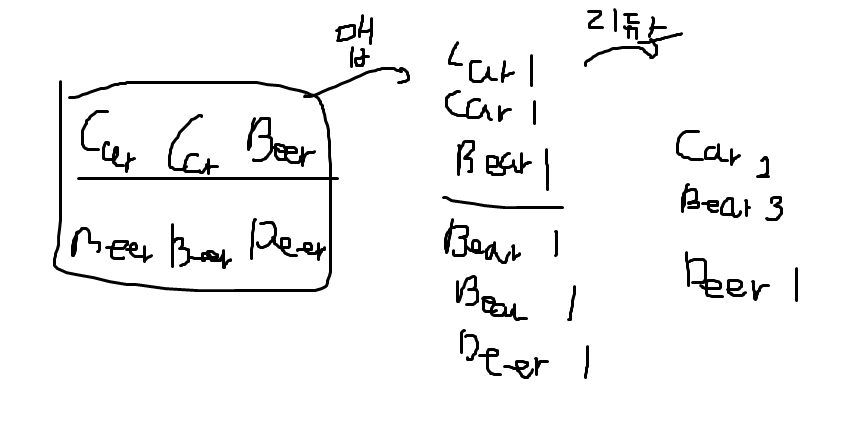 매퍼
리듀서
Car Car Beer
Beer Bear Deer
Car 1
Car 1
Bear 1
Bear 1
Bear 1
Deer 1
Car 2
Bear 3
Deer 1